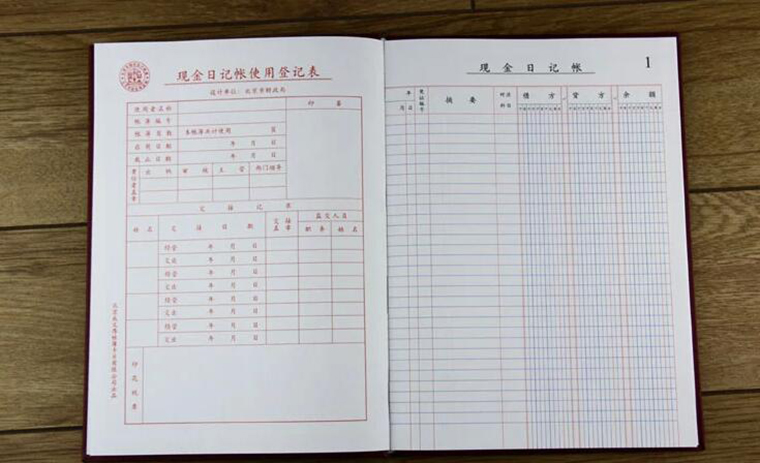 现金日记帐使用登记表
设计单位：北京市财政局
使用者名称
印 鉴
帐簿编号
帐簿页数 本帐簿共计使用 页
启用日期 年 月 日
截止日期 年 月 日
责任者盖章
出纳 审核 主管 部门领导
交接记录
姓名 交接日期 交接盖章 监交人员
职务 姓名
经管 年 月 日
交出 年 月 日
经管 年 月 日
交出 年 月 日
经管 年 月 日
交出 年 月 日
经管 年 月 日
交出 年 月 日
印花税票
现金日记帐 1
年 凭证编号 摘要 对方科目 借方 贷方 余额
月 日